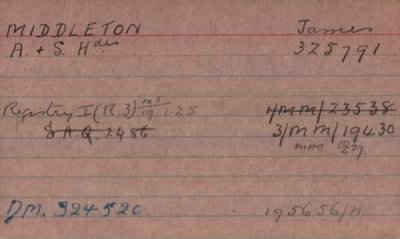 MIDDLETON James
A. & S. Hdrs 325791
Registry I (R.3) 19.1.25 4/MM/23538
S.A.Q. 2486 3/MM/19430
DM. 32452c 195656/A